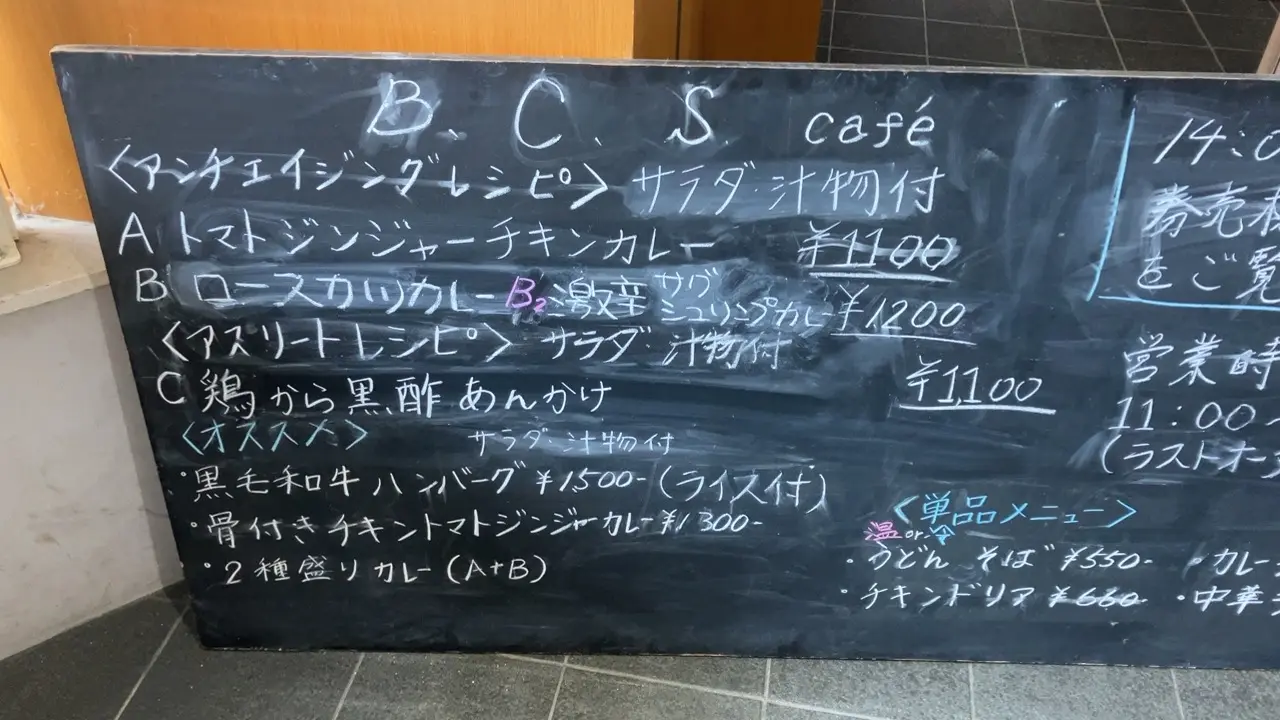 B. C. S café
<アンチエイジングレシピ> サラダ・汁物付
A トマトジンジャーチキンカレー ¥1100
B ロースカツカレー B2 激辛 サグシュリンプカレー ¥1200
<アスリートレシピ> サラダ・汁物付
C 鶏から黒酢あんかけ ¥1,100
<オススメ> サラダ・汁物付
・黒毛和牛ハンバーグ ¥1,500- (ライス付)
・骨付きチキントマトジンジャーカレー ¥1300-
・2種盛りカレー(A+B)
14:0
券売
をご覧
営業時
11:00
(ラストオー
<単品メニュー>
温 or 冷
・うどん そば ¥550- ・カレー
・チキンドリア ¥660- ・中華